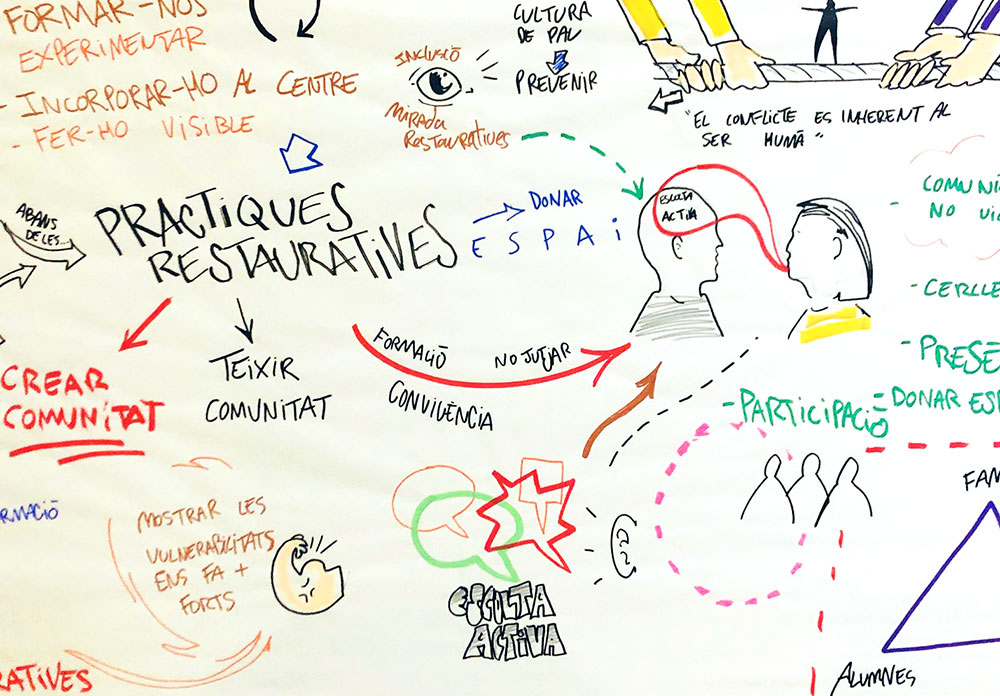 FORMAR-NOS
EXPERIMENTAR
- INCORPORAR-HO AL CENTRE
- FER-HO VISIBLE
INCLUSIÓ
MIRADA
RESTAURATIVES
CULTURA
DE PAU
PREVENIR
"EL CONFLICTE ES INHERENT AL
SER HUMÀ"
ABANS
DE LES...
PRACTIQUES
RESTAURATIVES
DONAR
ESPAi
ESCOLTA
ACTIVA
COMUNI
NO VIO
- CERCLE
- PRESE
- DONAR ESP
CREAR
COMUNITAT
TEIXIR
COMUNITAT
FORMACIÓ
NO JUTJAR
CONVIVÈNCIA
- PARTICIPACIÓ
RMACIÓ
MOSTRAR LES
VULNERABILITATS
ENS FA +
FORTS
ESCOLTA
ACTIVA
FAM
ALUMNES
RATIVES